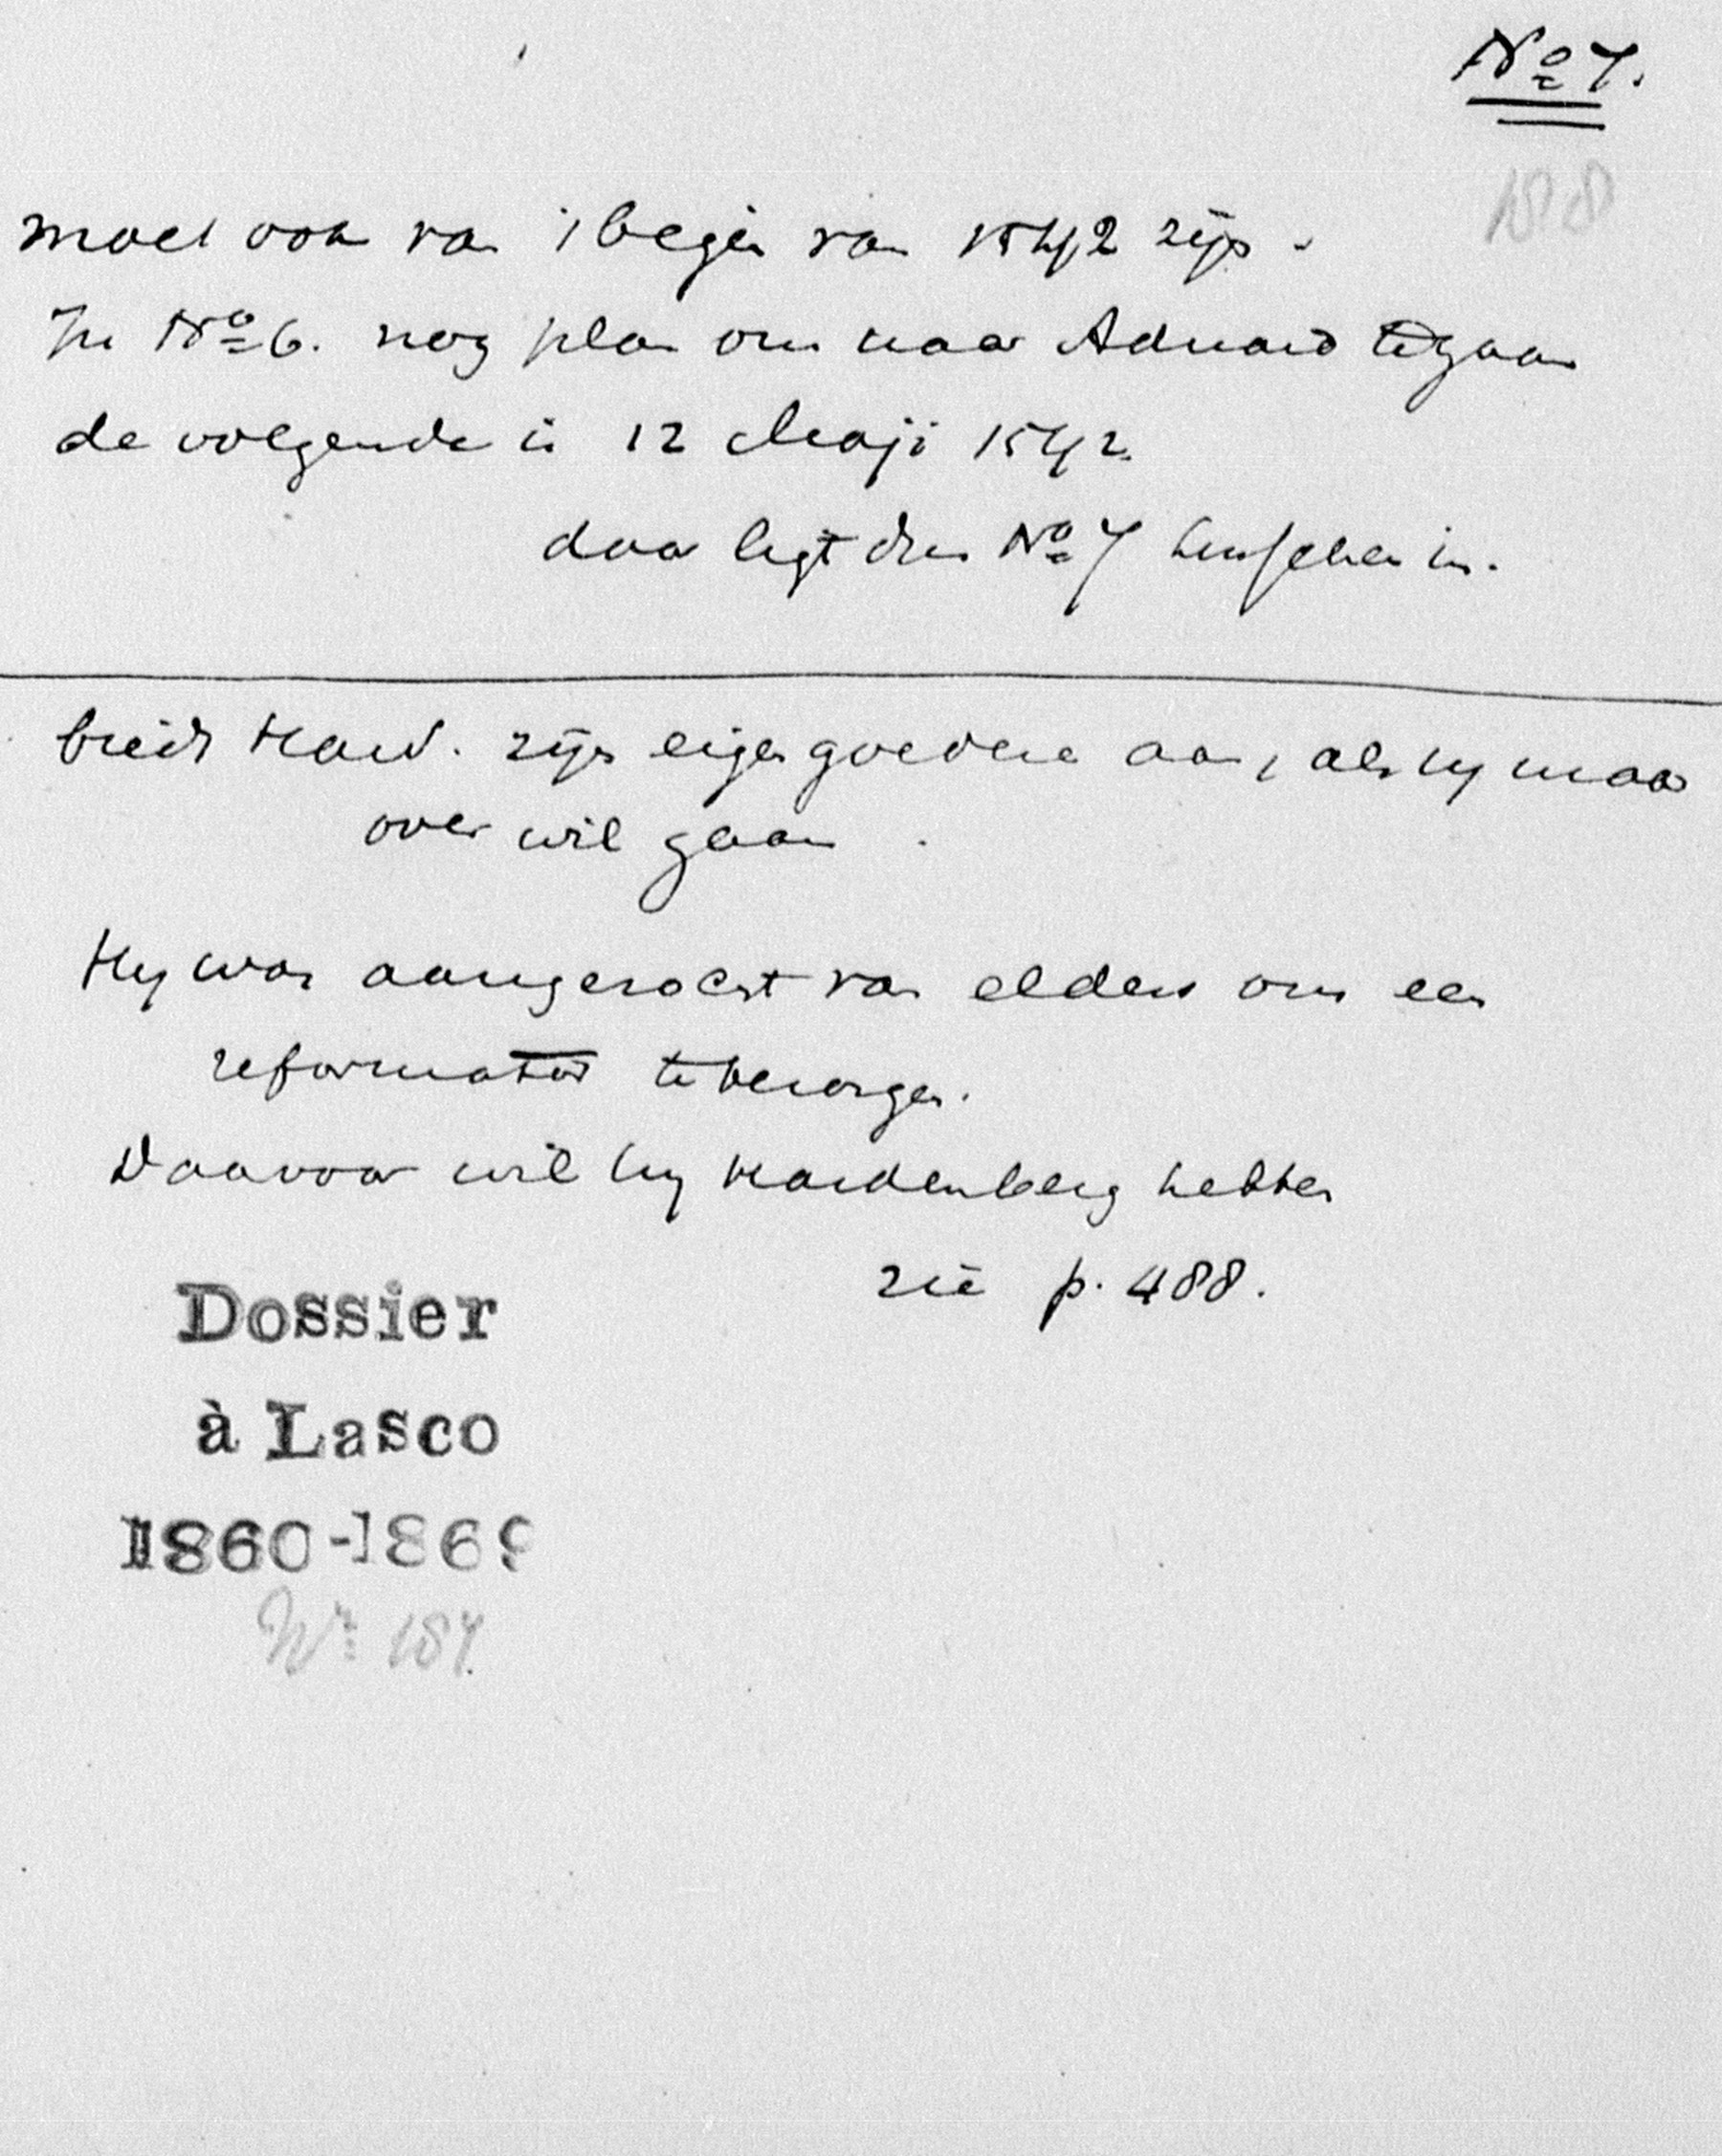 No 7.
188
moet ook van 't begin van 1542 zijn.
In No 6. nog plan om naar Aduard te gaan
de volgende is 12 Maji 1542.
daar ligt dus No 7 tusschen in.
biedt Hard. zijn eigen goederen aan, als hy maar
over wil gaan.
Hy was aangezocht van elders om een
reformator te bezorgen.
Daarvoor wil hy Hardenberg hebben
zie p. 488.
Dossier
à Lasco
1860-1869
Nr 187.